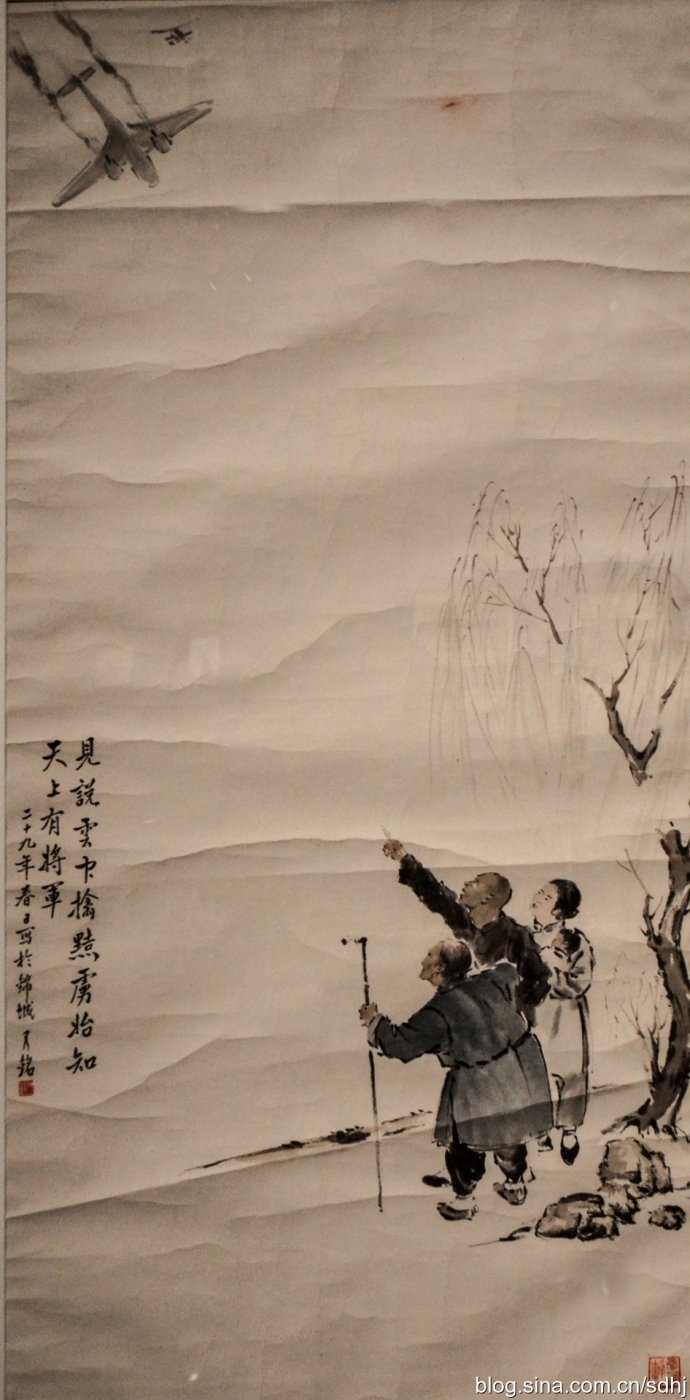 見說雲中擒黠虜始知
天上有將軍
二十九年春日写於錦城 銘
blog.sina.com.cn/sdhj